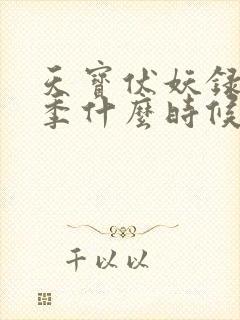 天寶伏妖録
季什麼時候
千以以